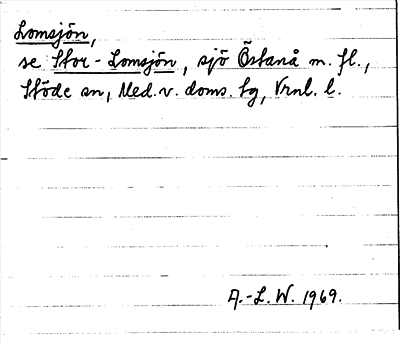 Lomsjön,
se Stor-Lomsjön, sjö Östanå m. fl.,
Stöde sn, Med. v. doms. tg, Vrnl. l.
A.-L. W. 1969.